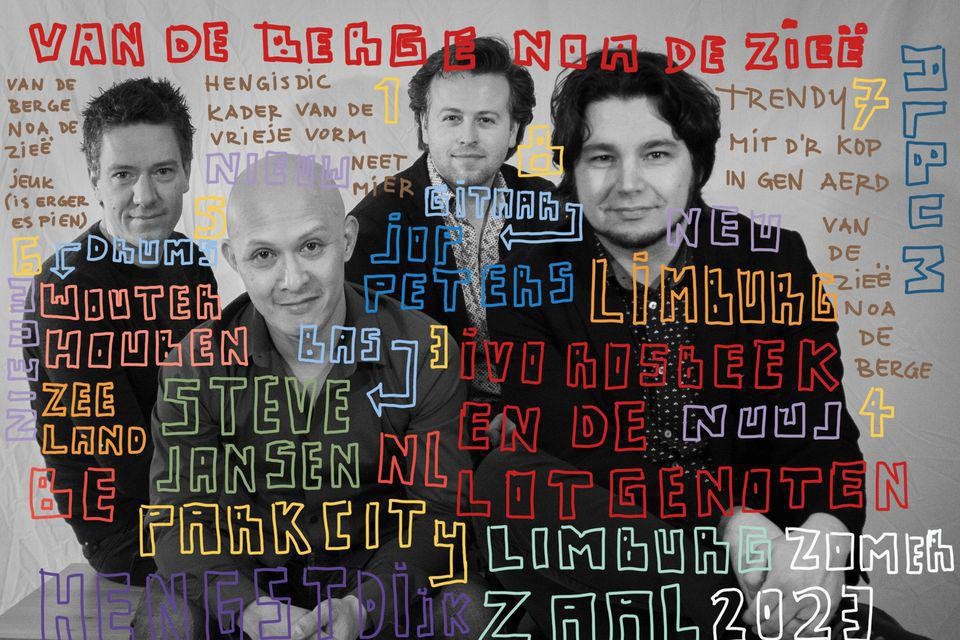 VAN DE BERGE NOA DE ZIEË
VAN DE
BERGE
NOA DE
ZIEË
JEUK
(IS ERGER
ES PIEN)
HENGISDIC
KADER VAN DE
VRIEJE VORM
1
NIEUW
NEET
MIER
8
TRENDY
7
MIT D'R KOP
IN GEN AERD
ALBUM
5
GITAAR
JOP
PETERS
NEU
VAN
DE
ZIEË
NOA
DE
BERGE
6
DRUMS
WOUTER
HOUBEN
NIEUW
LIMBURG
BAS
3
IVO ROSBEEK
EN DE
LOTGENOTEN
NUUJ
4
ZEE
LAND
STEVE
JANSEN
NL
BE
PARKCITY
LIMBURG
ZOMER
HENGSTDIJK
ZAAL
2023